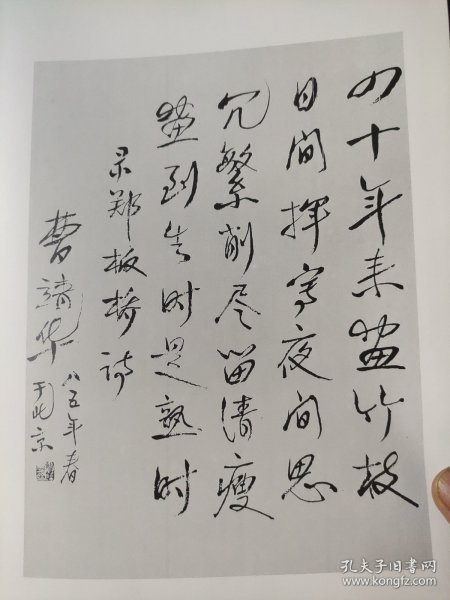 四十年来畫竹枝
日间揮寫夜间思
冗繁削尽留清瘦
畫到生时是熟时
录郑板桥诗
曹靖华
八五年春
于北京
孔夫子旧书网
www.kongfz.com